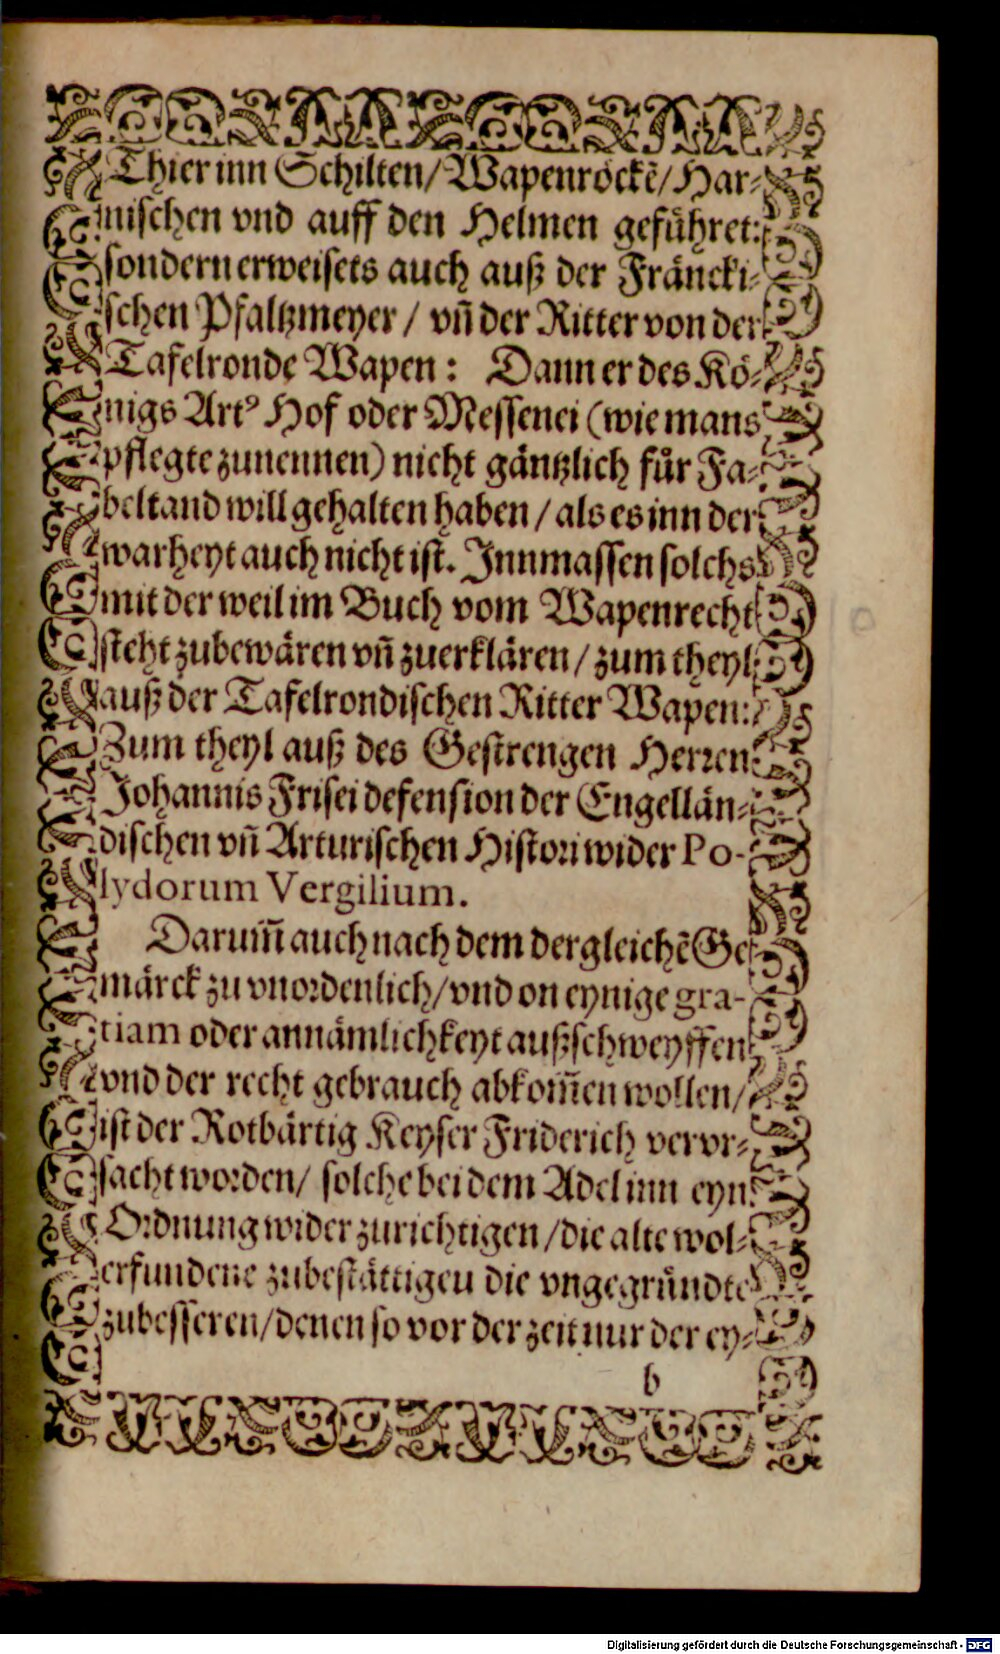 Thier inn Schilten/ Wapenröckẽ/ Har⸗
nischen vnd auff den Helmen gefůhret:
sondern erweisets auch auß der Fräncki⸗
schen Pfaltzmeyer / vñ der Ritter von der
Tafelronde Wapen : Dann er des Kö⸗
nigs Artꝰ Hof oder Messenei (wie mans
pflegte zunennen) nicht gäntzlich fůr Fa⸗
beltand will gehalten haben / als es inn der
warheyt auch nicht ist. Innmassen solchs
mit der weil im Buch vom Wapenrecht
steht zubewären vñ zuerklären / zum theyl
auß der Tafelrondischen Ritter Wapen:
Zum theyl auß des Gestrengen Herren
Johannis Frisei defension der Engellän⸗
dischen vñ Arturischen Histori wider Po-
lydorum Vergilium.
Darum̃ auch nach dem dergleichẽ Ge
märck zu vnordenlich/ vnd on eynige gra-
tiam oder annämlichkeyt außschweyffen
vnd der recht gebrauch abkom̃en wollen/
ist der Rotbärtig Keyser Friderich vervr⸗
sacht worden/ solche bei dem Adel inn eyn
Ordnung wider zurichtigen / die alte wol⸗
erfundene zubestättigeu die vngegründte
zubesseren/ denen so vor der zeit nur der ey⸗
b
Digitalisierung gefördert durch die Deutsche Forschungsgemeinschaft - DFG